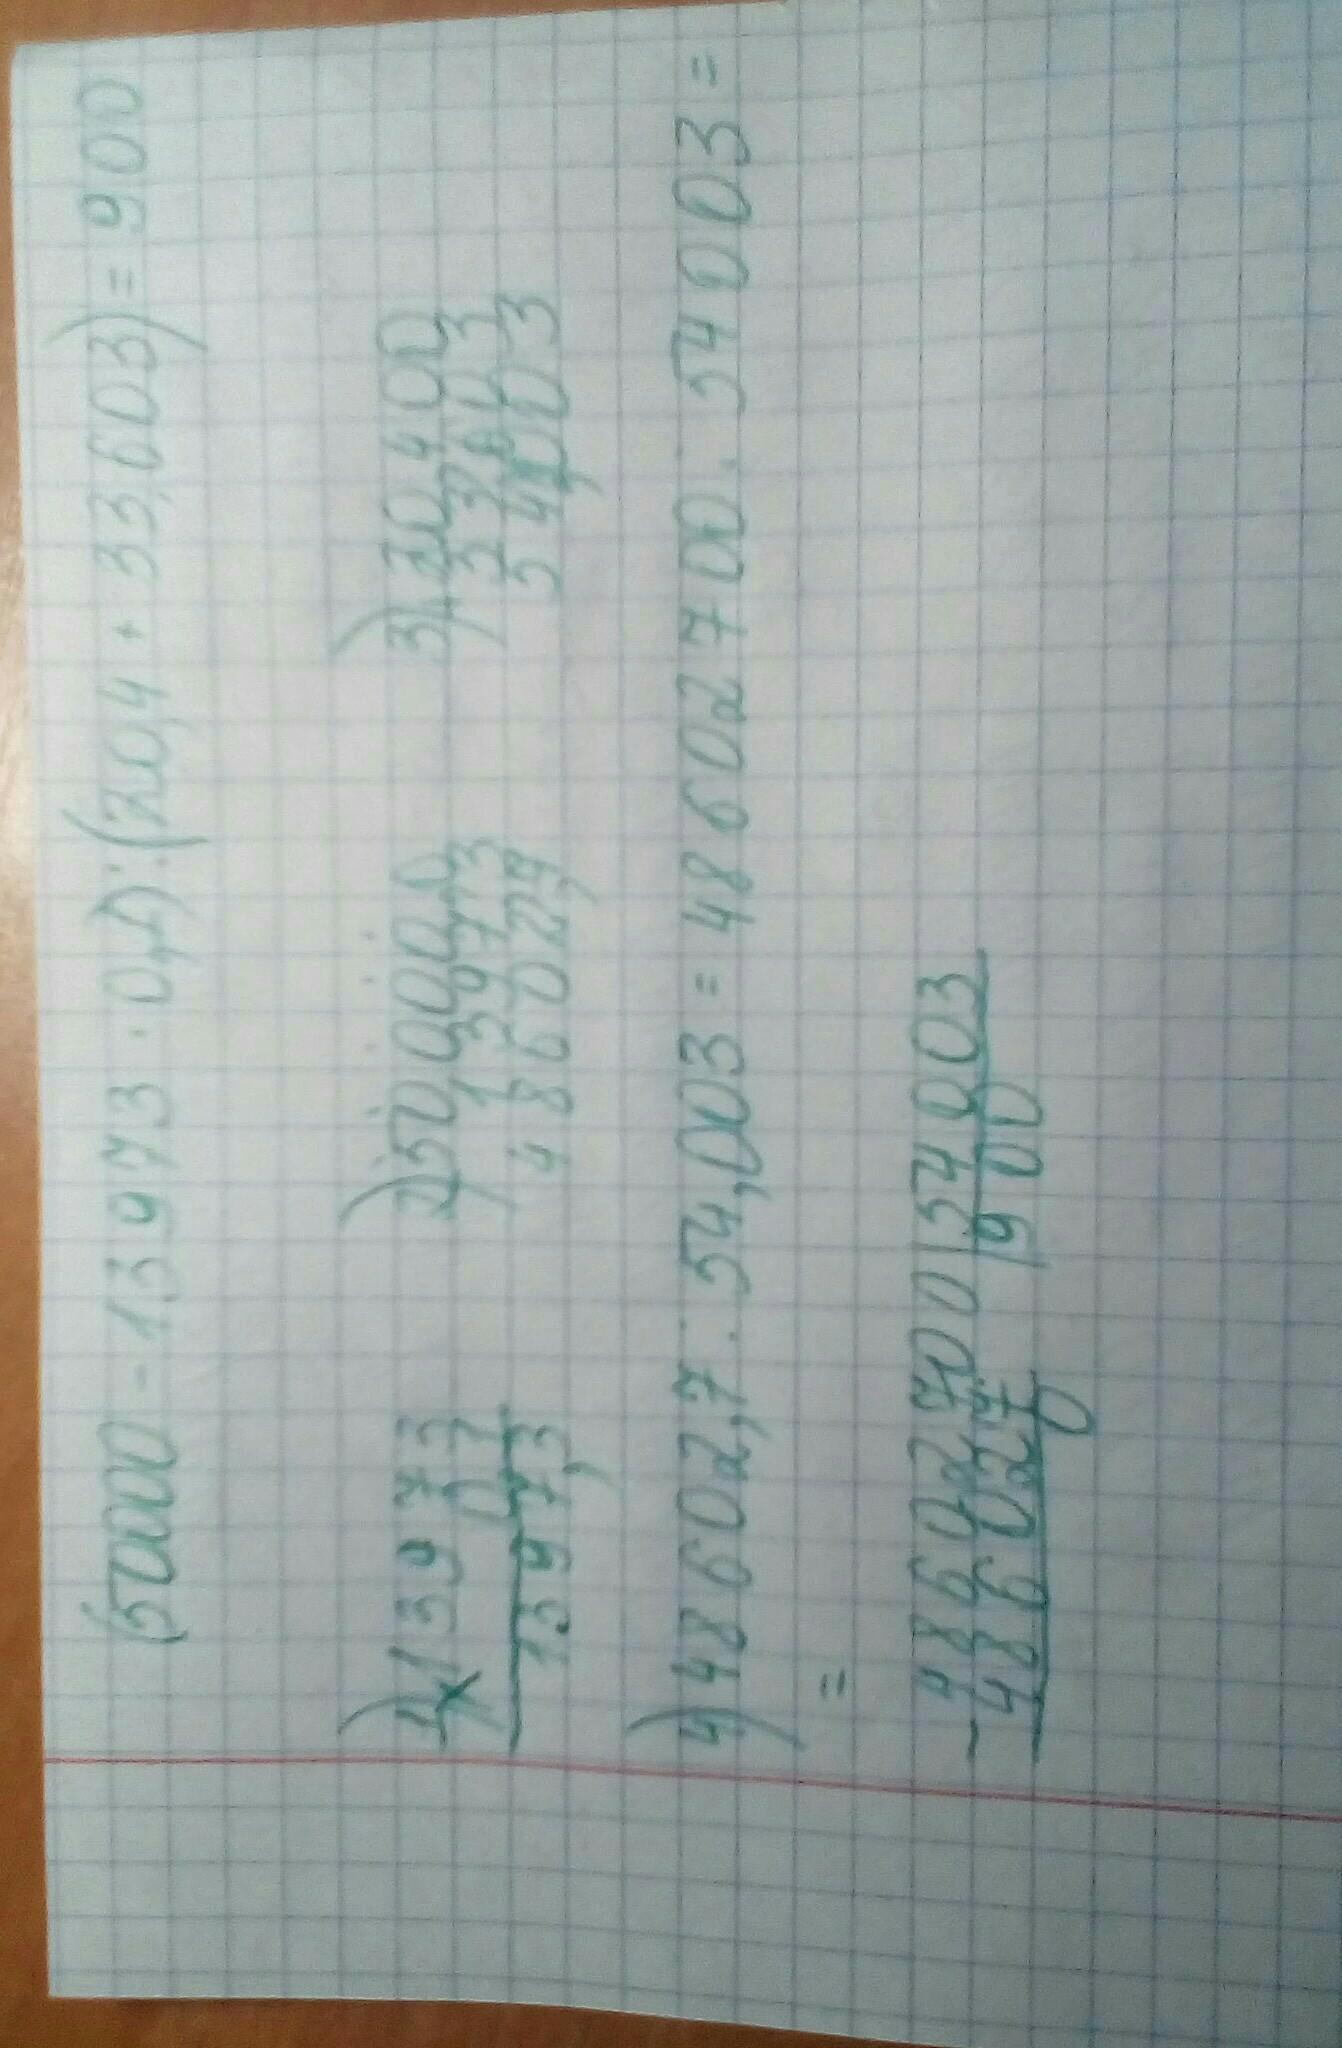 (50000 - 13973 · 0,1) : (20,4 + 33,603) = 900
1) 13973 2) 50000,0 3) 20,400
× 0,1 1397,3 + 33,603
1397,3 48602,7 54,003
4) 48602,7 : 54,003 = 48602700 : 54003 =
=
- 48602700 | 54003
486027 | 900
0